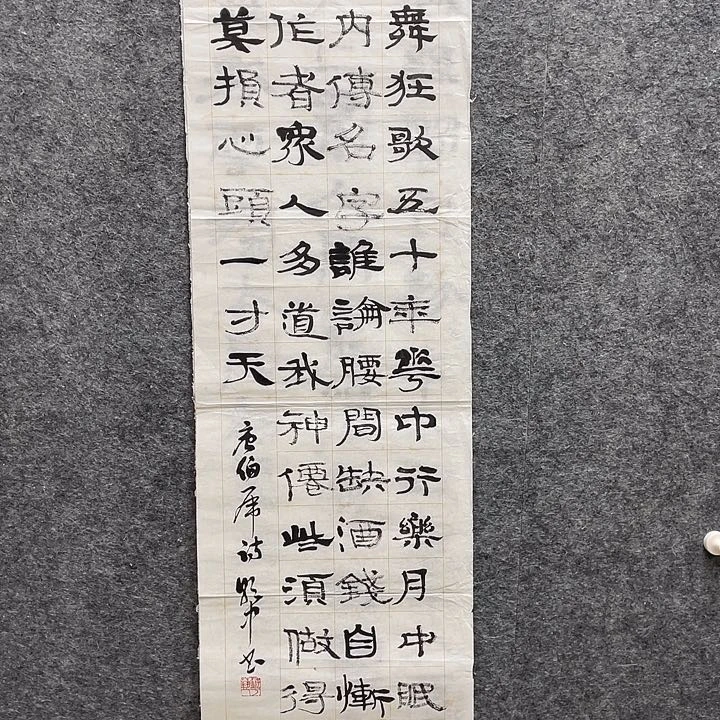 舞狂歌五十年花中行樂月中眠
内傳名字誰論腰間缺酒錢自慚
作者衆人多道我神僊些須做得
莫損心頭一寸天
唐伯虎詩